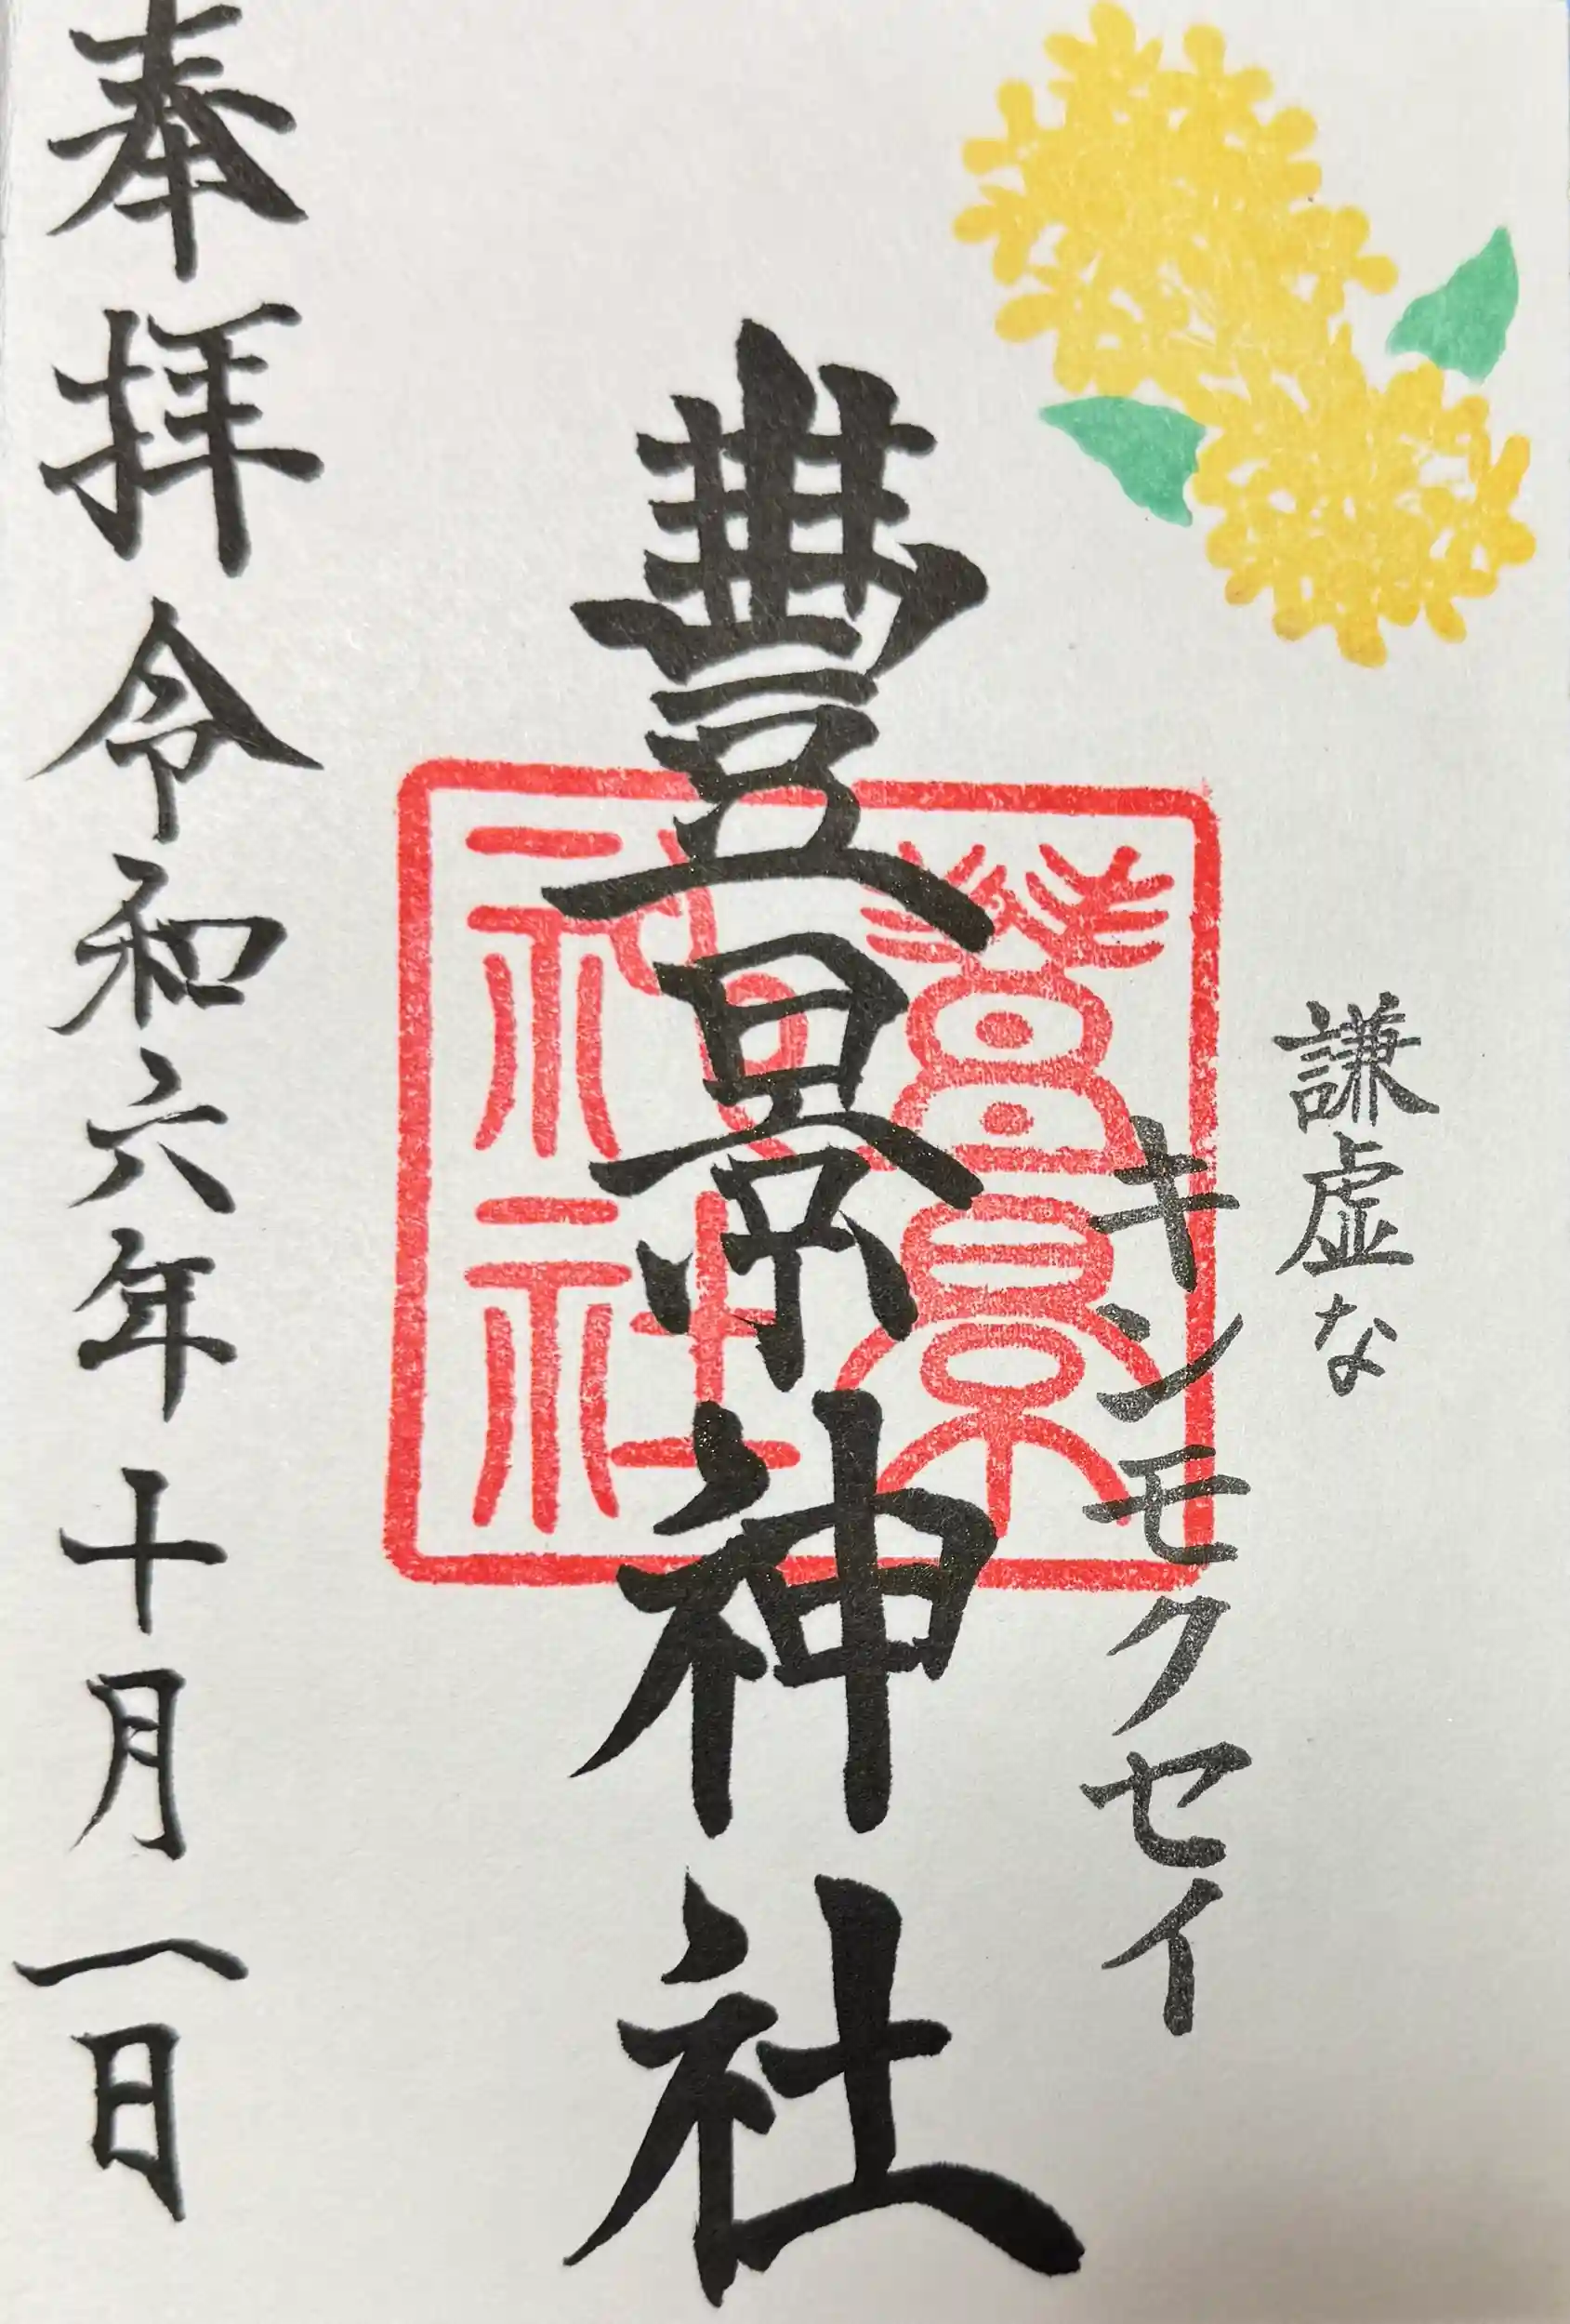 謙虚な
キンモクセイ
豊景神社
豊景神社
奉拝 令和六年十月一日